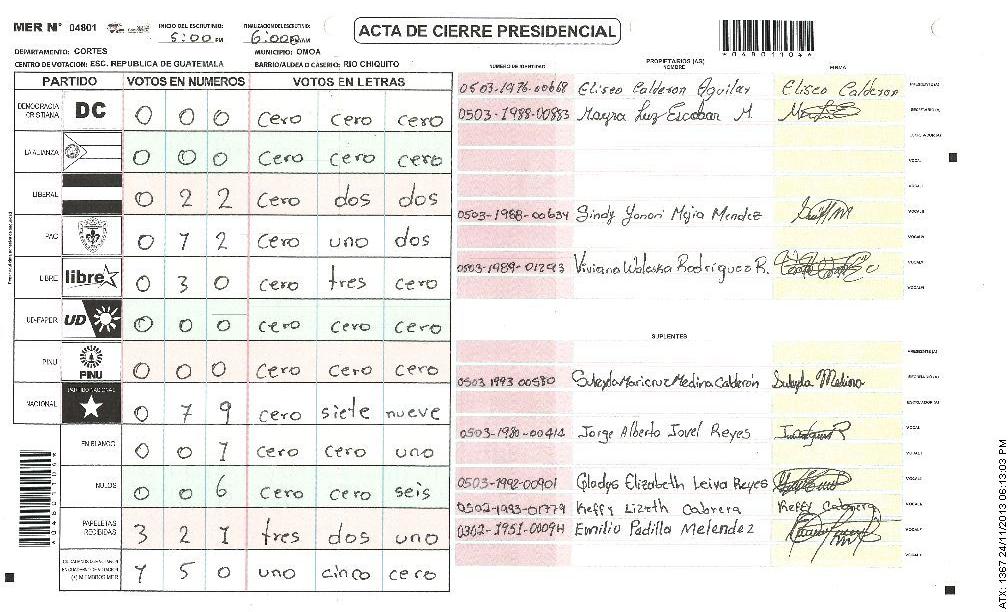 MER N° 04801
INICIO DEL ESCRUTINIO: 5:00 PM
FINALIZACION DEL ESCRUTINIO: 6:00 PM
ACTA DE CIERRE PRESIDENCIAL
*04801104*
DEPARTAMENTO: CORTES
MUNICIPIO: OMOA
CENTRO DE VOTACION: ESC. REPUBLICA DE GUATEMALA
BARRIO/ALDEA O CASERIO: RIO CHIQUITO
PARTIDO VOTOS EN NUMEROS VOTOS EN LETRAS
DEMOCRACIA CRISTIANA DC 0 0 0 cero cero cero
LA ALIANZA 0 0 0 cero cero cero
LIBERAL 0 2 2 cero dos dos
PAC 0 1 2 cero uno dos
LIBRE libre 0 3 0 cero tres cero
UD-FAPER UD 0 0 0 cero cero cero
PINU PINU 0 0 0 cero cero cero
NACIONAL PARTIDO NACIONAL 0 7 9 cero siete nueve
EN BLANCO 0 0 1 cero cero uno
NULOS 0 0 6 cero cero seis
PAPELETAS RECIBIDAS 3 2 1 tres dos uno
(+) MIEMBROS MER 1 5 0 uno cinco cero
PROPIETARIOS (AS)
NUMERO DE IDENTIDAD NOMBRE FIRMA
0503-1976-00668 Eliseo Calderon Aguilar Eliseo Calderon PRESIDENTE (A)
0503-1988-00883 Mayra Luz Escobar M. SECRETARIO (A)
ESCRUTADOR (A)
VOCAL I
0503-1988-00634 Sindy Yonari Mejia Mendez
0503-1989-01293 Viviana Waleska Rodriguez R.
SUPLENTES
PRESIDENTE (A)
0503 1993 00580 Suleyda Maricruz Medina Calderón Suleyda Medina SECRETARIO (A)
ESCRUTADOR (A)
0503-1980-00414 Jorge Alberto Jovel Reyes
0503-1992-00901 Gladys Elizabeth Leiva Reyes
0502-1993-01779 Keffy Lizeth Cabrera Keffy Cabrera
Emilio Padilla Melendez
ATX: 1367 24/11/2013 06:13:03 PM